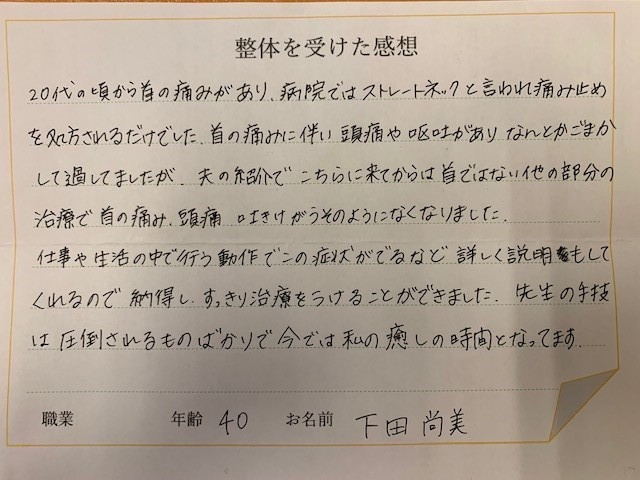 整体を受けた感想
20代の頃から首の痛みがあり、病院ではストレートネックと言われ痛み止め
を処方されるだけでした。首の痛みに伴い頭痛や嘔吐がありなんとかごまか
して過してましたが、夫の紹介でこちらに来てからは首ではない他の部分の
治療で首の痛み、頭痛 吐きけがうそのようになくなりました。
仕事や生活の中で行う動作でこの症状がでるなど詳しく説明もして
くれるので納得し、すっきり治療をうけることができました。先生の手技
は圧倒されるものばかりで今では私の癒しの時間となってます。
職業 年齢 40 お名前 下田 尚美